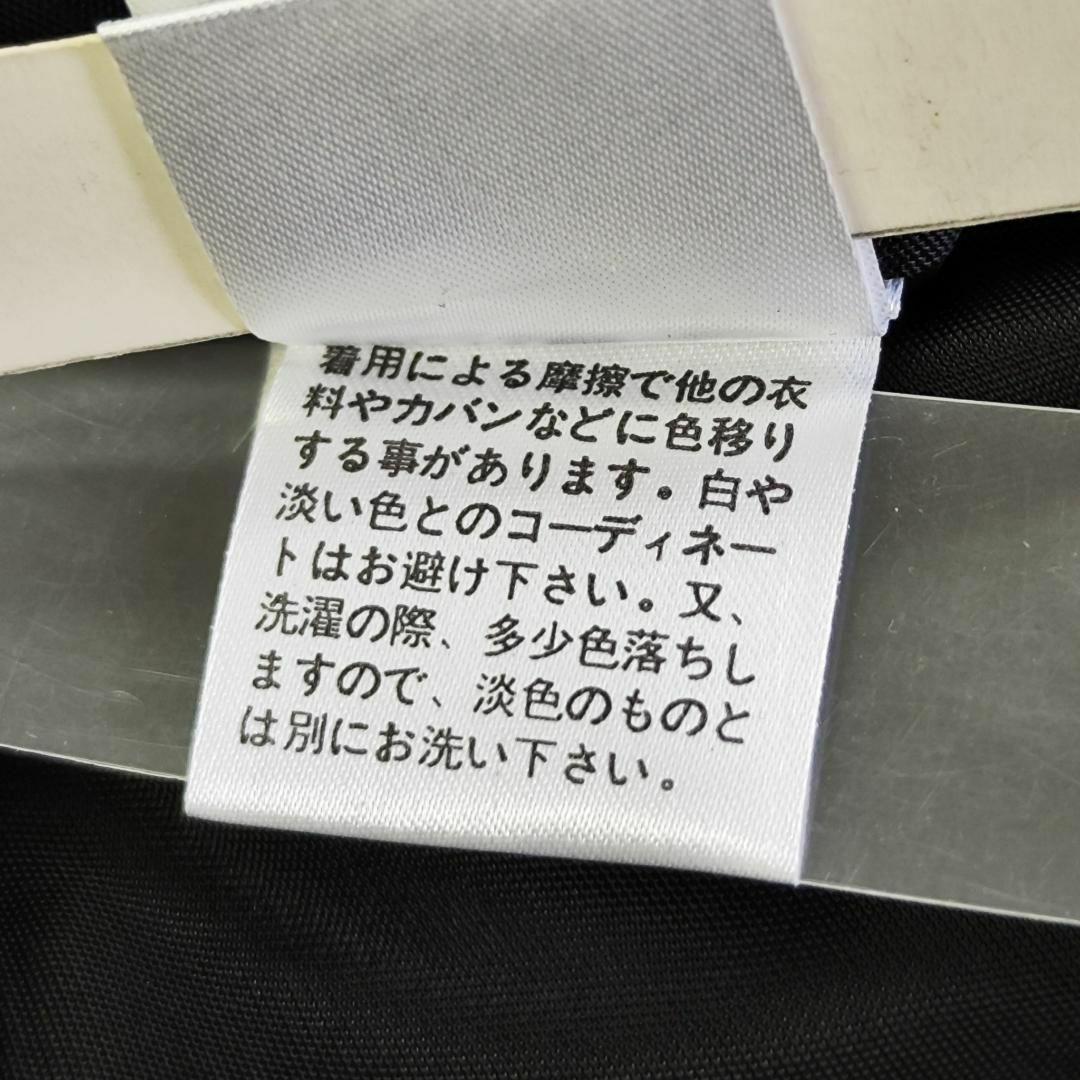 着用による摩擦で他の衣
料やカバンなどに色移り
する事があります。白や
淡い色とのコーディネー
トはお避け下さい。又、
洗濯の際、多少色落ちし
ますので、淡色のものと
は別にお洗い下さい。